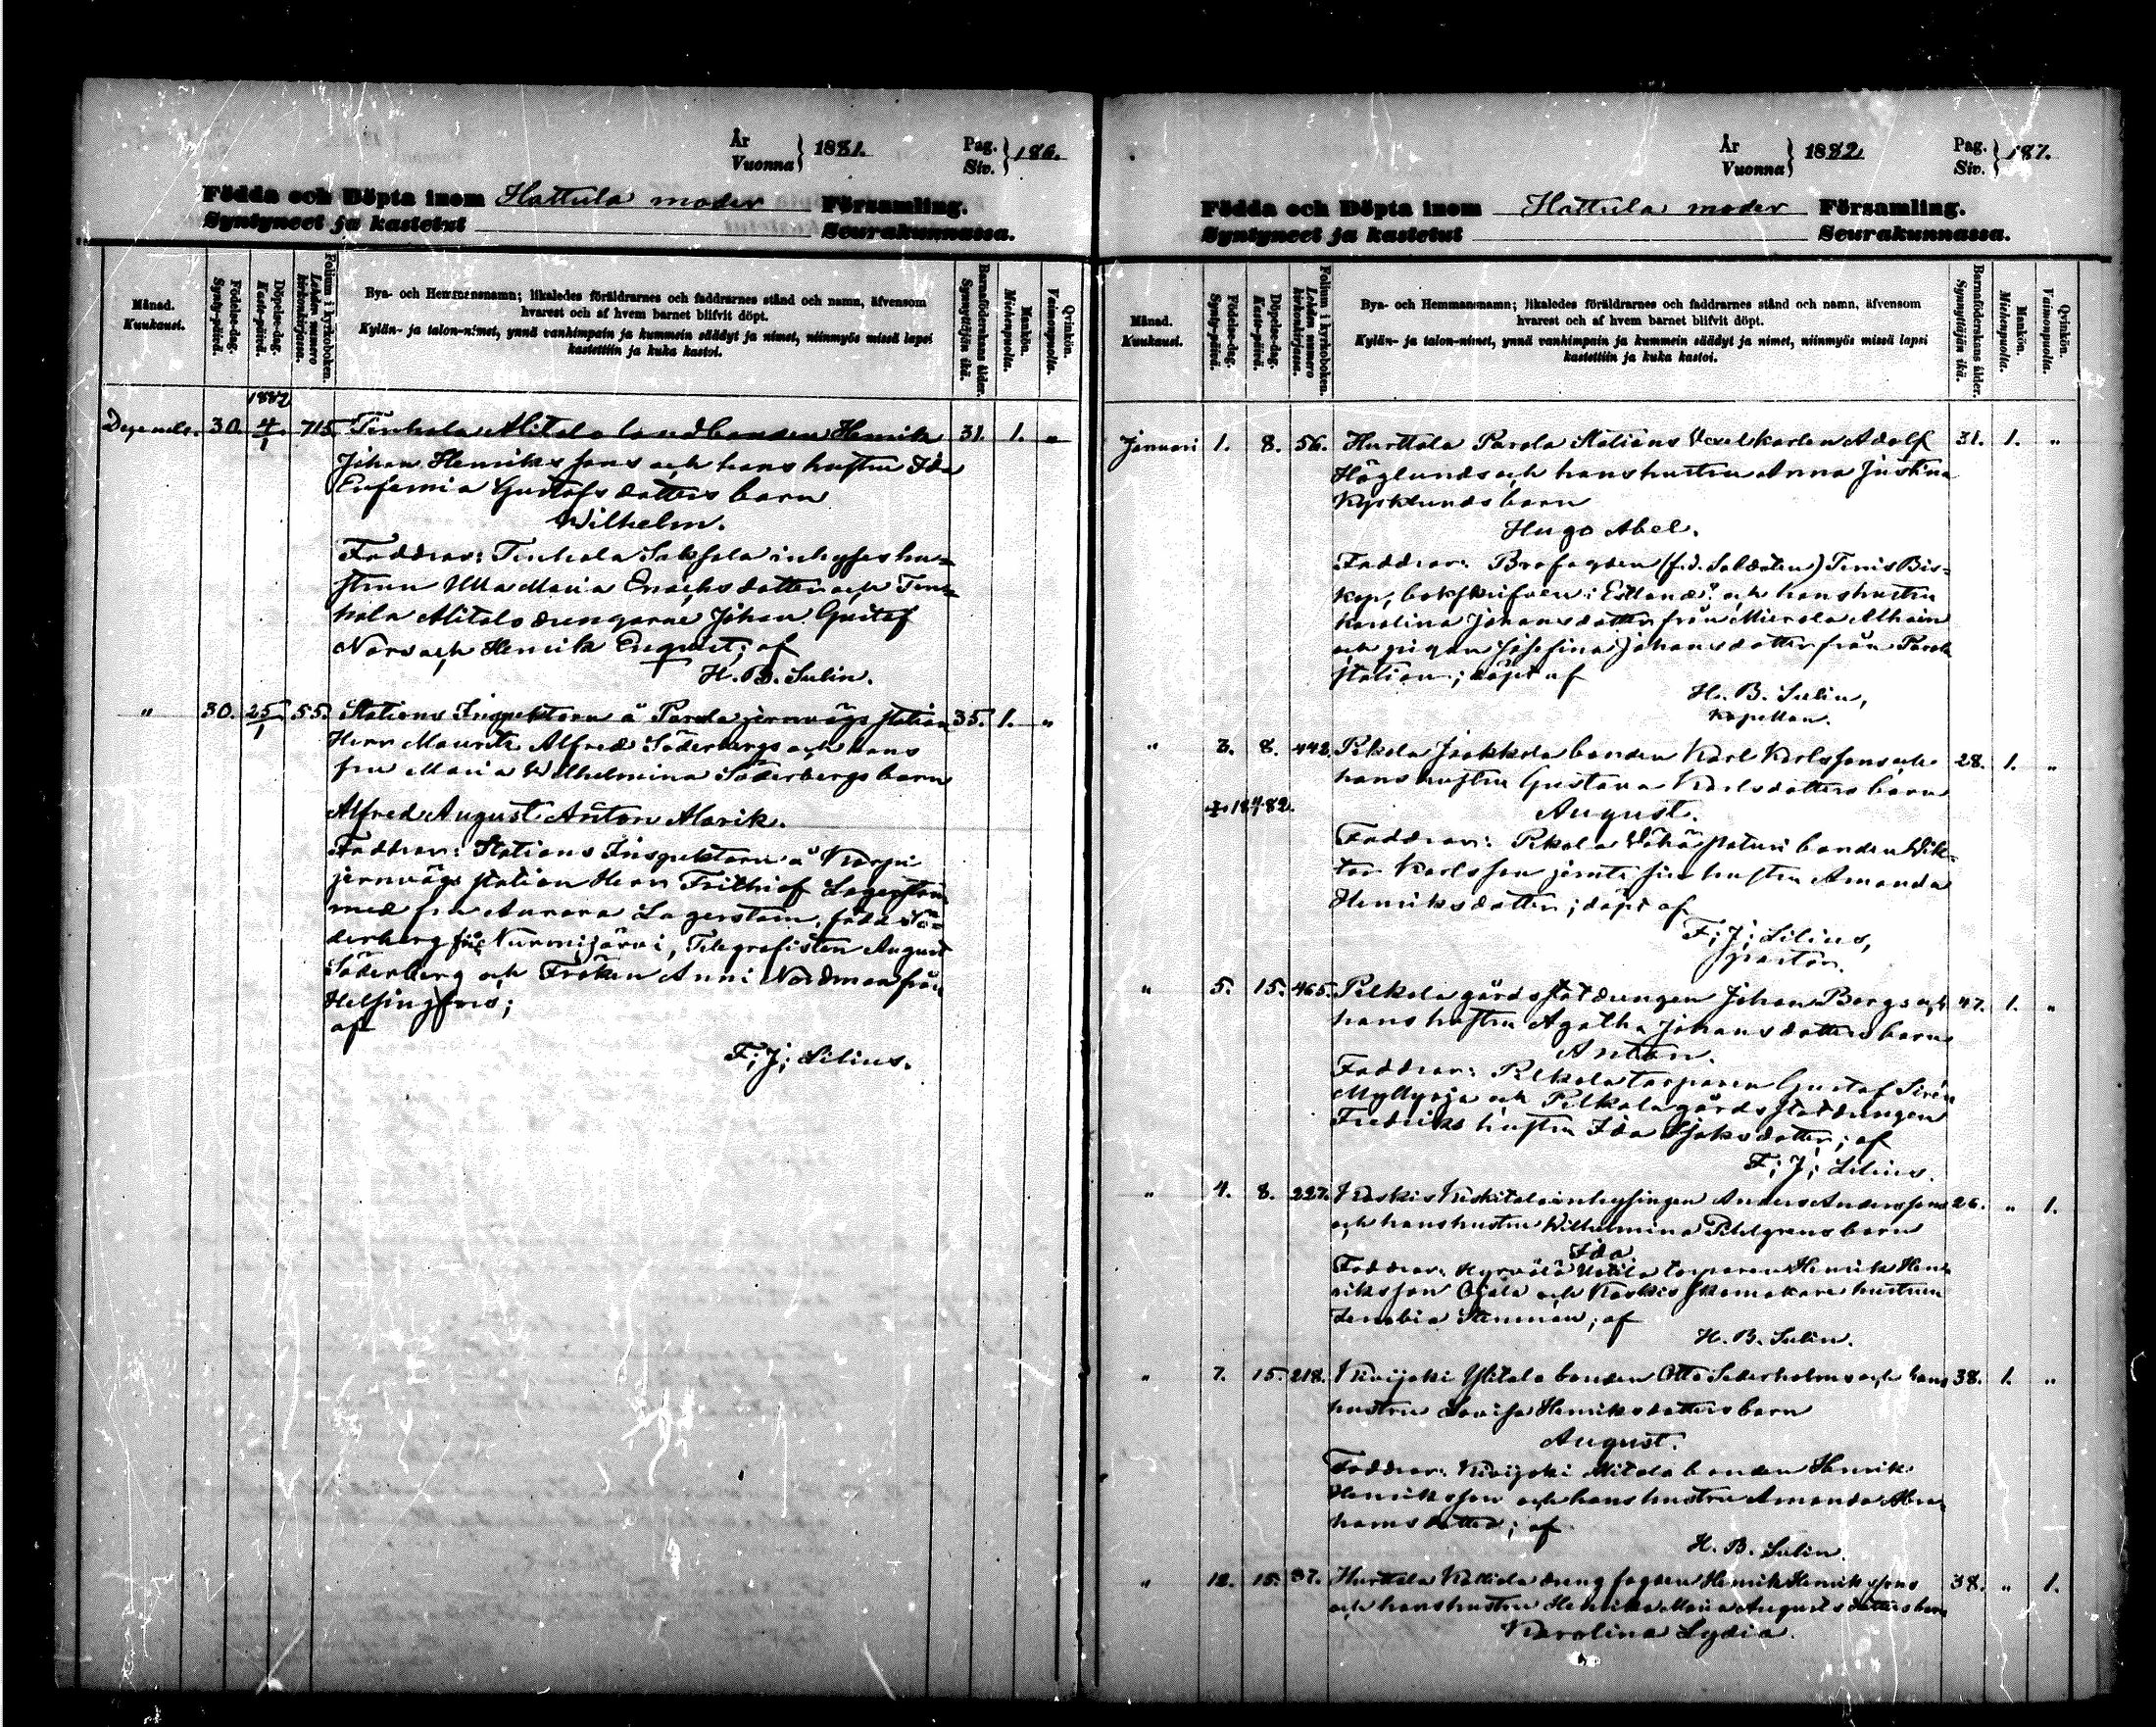 År
Vuonna } 1881. Pag.
Siv. } 186.
Födda och Döpta inom Hattula moder Församling.
Syntyneet ja kastetut Seurakunnassa.
Månad.
Kuukausi.
Födelse-dag.
Synty-päivä.
Döpelse-dag.
Kaste-päivä.
Folium i kyrkoboken.
Lehden numero
kirkonkirjassa.
Bya- och Hemmansnamn; likaledes föräldrarnes och faddrarnes stånd och namn, äfvensom
hvarest och af hvem barnet blifvit döpt.
Kylän- ja talon-nimet, ynnä vanhimpain ja kummein säädyt ja nimet, niinmyös missä lapsi
kastettiin ja kuka kastoi.
Barnaföderskans ålder.
Synnyttäjän ikä.
Mankön.
Miehenpuolia.
Qvinkön.
Vaimonpuolia.
1882
30. 4/1 715. Tenhola Alitalo landbonden Henrik 31. 1. "
Johan Henrikssons och hans hustru Ida
Eufemia Gustafsdotters barn
Wilhelm.
Faddrar: Tenhola inhyses hu-
strun Ulla Maria och Ten-
hola Alitalo drengarne Johan Gustaf
och Henrik Enqvist; af
H. B. Sulin.
" 30. 25/1 55. Stations Inspektorn å Parola jernvägs station 35. 1. "
Herr Mauritz Alfred Söderbergs och hans
fru Maria Wilhelmina Söderbergs barn
Alfred August Anton Alarik.
Faddrar: Stations Inspektorn å Korpi
jernvägs station Herr Frithiof Lagerstam
med fru Aurora Lagerstam, född Sö-
derberg från Nurmijärvi, Telegrafisten August
Söderberg och Fröken Anni Nordman från
Helsingfors;
af
F; J; Lilius.
År
Vuonna } 1882 Pag.
Siv. } 187.
Födda och Döpta inom Hattula moder Församling.
Syntyneet ja kastetut Seurakunnassa.
Månad.
Kuukausi.
Födelse-dag.
Synty-päivä.
Döpelse-dag.
Kaste-päivä.
Folium i kyrkoboken.
Lehden numero
kirkonkirjassa.
Bya- och Hemmansnamn; likaledes föräldrarnes och faddrarnes stånd och namn, äfvensom
hvarest och af hvem barnet blifvit döpt.
Kylän- ja talon-nimet, ynnä vanhimpain ja kummein säädyt ja nimet, niinmyös missä lapsi
kastettiin ja kuka kastoi.
Barnaföderskans ålder.
Synnyttäjän ikä.
Mankön.
Miehenpuolia.
Qvinkön.
Vaimonpuolia.
Januari 1. 8. 56. Hurttala Parola Stations Vexelkarlen Adolf 31. 1. "
Höglunds och hans hustru Anna Justina
barn
Hugo Abel.
Faddrar: (f.d. Soldaten) Bis-
kop, och hans hustru
Karolina Johansdotter från Mierola
och pigan Josefina Johansdotter från Parola
station; döpt af
H. B. Sulin,
Kapellan.
" 3. 8. 442. Pekola Jaakkola bonden Karl Karlssons och 28. 1. "
hans hustru Gustava Karlsdotters barn
August.
Faddrar: Pekola bonden Wik-
tor Karlsson jemte sin hustru Amanda
Henriksdotter; döpt af
F; J; Lilius,
pastor.
" 5. 15. 465. Pelkola gårds statdrengen Johan Bergs och 47. 1. "
hans hustru Agatha Johansdotters barn
Anton.
Faddrar: Pelkola torparen Gustaf Sirén
Myllyoja och Pelkola gårds statdrengen
Fredriks hustru Ida af
F; J; Lilius.
" 4. 8. 227. inhysingen Anders Anderssons 26. " 1.
och hans hustru Wilhelmina barn
Ida
Faddrar: Uotila torparen Henrik Hen-
riksson Ojala och skomakare hustrun
Stenman; af
H. B. Sulin.
" 7. 15. 218. Ylitalo bonden Otto Sederholms och hans 38. 1. "
hustru Lovisa Henriksdotters barn
August.
Faddrar: Alitalo bonden Henrik
Henriksson och hans hustru Amanda Abra-
hamsdotter; af
H. B. Sulin.
" 12. 15. 37. Hurttala drengfogden Henrik Henrikssons 38. " 1.
och hans hustru Henrika Maria Augustsdotters barn
Karolina Lydia.